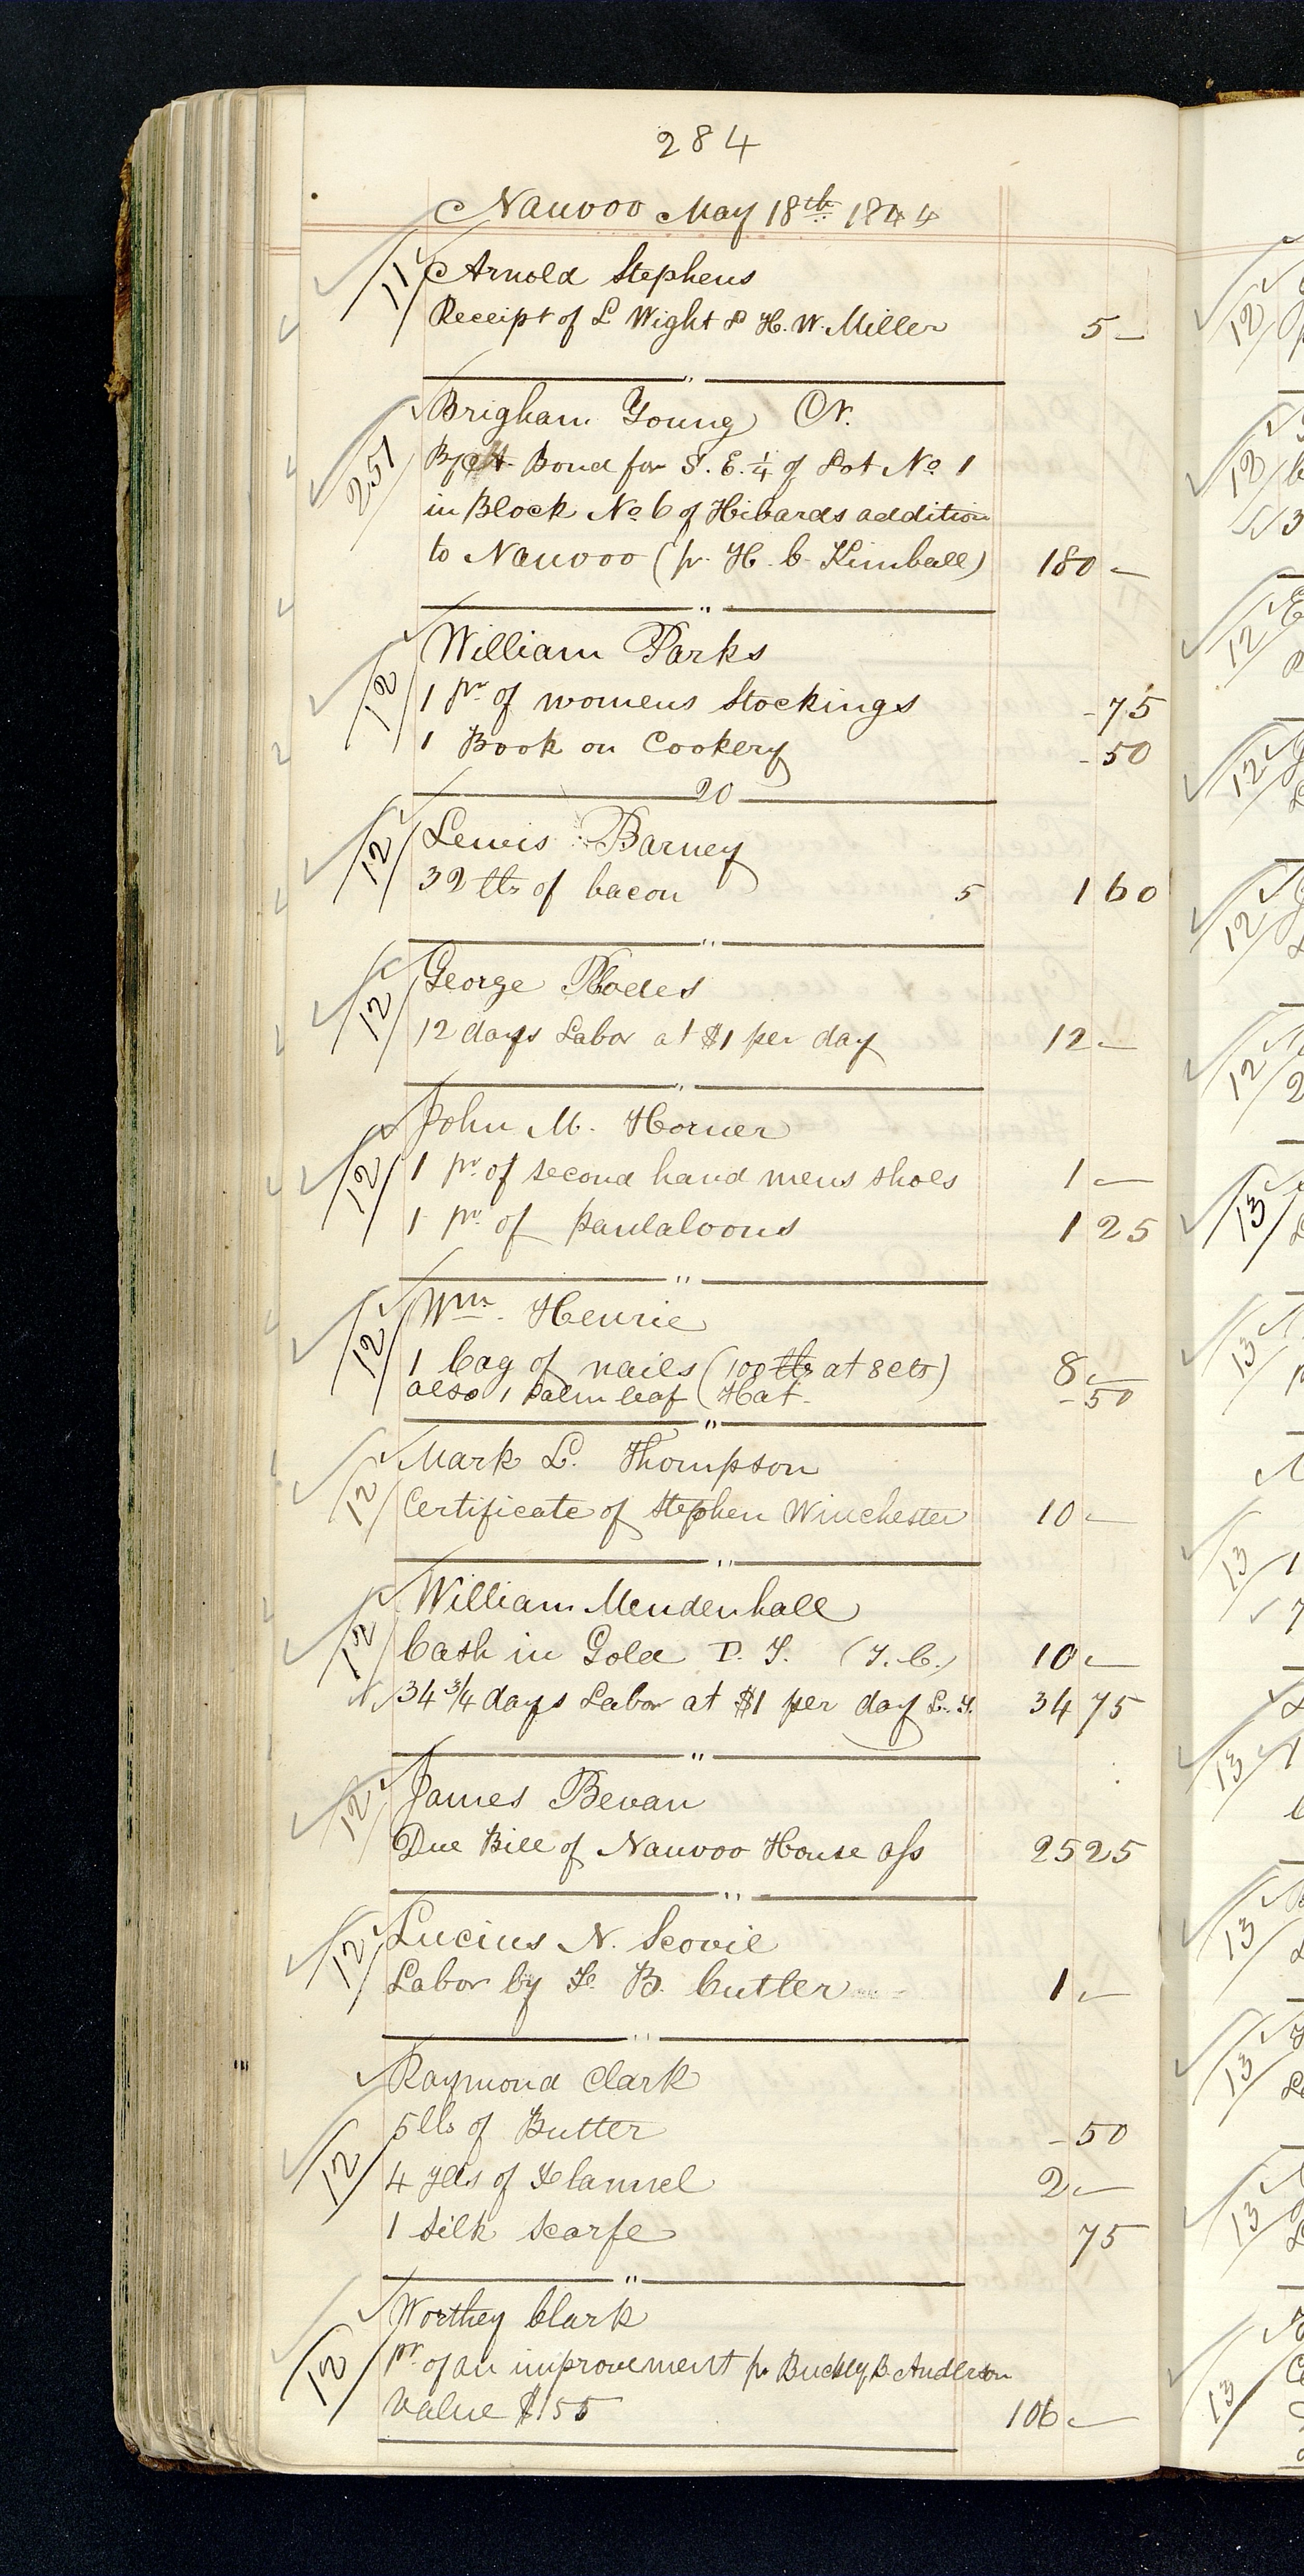 284
Nauvoo May 18th 1844
11 Arnold Stephens
Receipt of L Wight & H. W. Miller 5 —
"
251 Brigham Young N.
By Bond for S. E. 1/4 of Lot No 1
in Block No 6 of Hibards addition
to Nauvoo (pr. H. C. Kimball) 180 —
"
12 William Parks
1 pr of womens Stockings - 75
1 Book on Cookery - 50
20
12 Lewis Barney
32 lbs of bacon 5 1 60
"
12 George Rhodes
12 days Labor at $1 per day 12 —
"
12 John M. Horner
1 pr. of second hand mens shoes 1 —
1 pr. of pantaloons 1 25
"
12 Wm. Henrie
1 bag of nails (100 lbs at 8 cts) 8 —
also 1 palm leaf Hat - - 50
"
12 Mark L. Thompson
Certificate of Stephen Winchester 10 —
"
12 William Mendenhall
Cash in Gold P. T. (T. C.) 10 —
N. 34 3/4 days Labor at $1 per day L. T. 34 75
"
12 James Bevan
Due Bill of Nauvoo House ass 25 25
"
12 Lucius N. Scovil
Labor by F. B. Cutler 1 —
"
12 Raymond Clark
5 lbs of Butter - 50
4 yds of Flannel 2 —
1 Silk Scarfe 75
"
12 Worthey Clark
pr. of an improvement pr Buckley B. Anderson
value $155 106 —
12
12
3
12
12
12
12
2
13
13
13
13
13
13
13
13